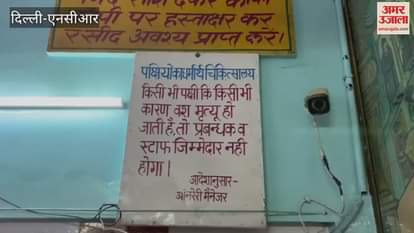 दिल्ली-एनसीआर
अमर उजाला
amarujala.com
पर हस्ताक्षर कर
रसीद अवश्य प्राप्त करें।
पक्षियो का धर्मार्थ चिकित्सालय
किसी भी पक्षी कि किसी भी
कारण वश मृत्यू हो
जाती है, तो प्रबन्धक व
स्टाफ जिम्मेदार नही
होगा।
आदेशानुसार-
ऑनरेरी मैनेजर